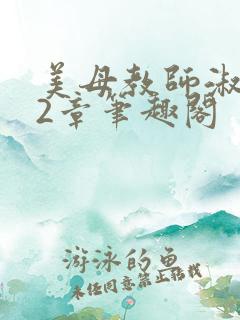 美母教师淑
2章笔趣阁
游泳的鱼
未经同意禁止转载